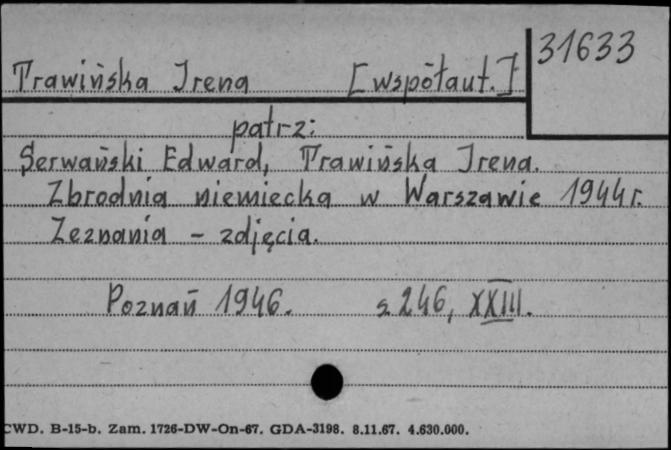 31633
Trawińska Irena [współaut.]
patrz:
Serwański Edward, Trawińska Irena.
Zbrodnia niemiecka w Warszawie 1944 r.
Zeznania - zdjęcia.
Poznań 1946. s. 246, XXIII.
CWD. B-15-b. Zam. 1726-DW-On-67. GDA-3198. 8.11.67. 4.630.000.